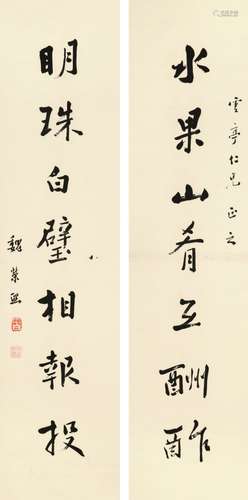 雲亭仁兄正之
水果山肴互酬酢
明珠白璧相報投